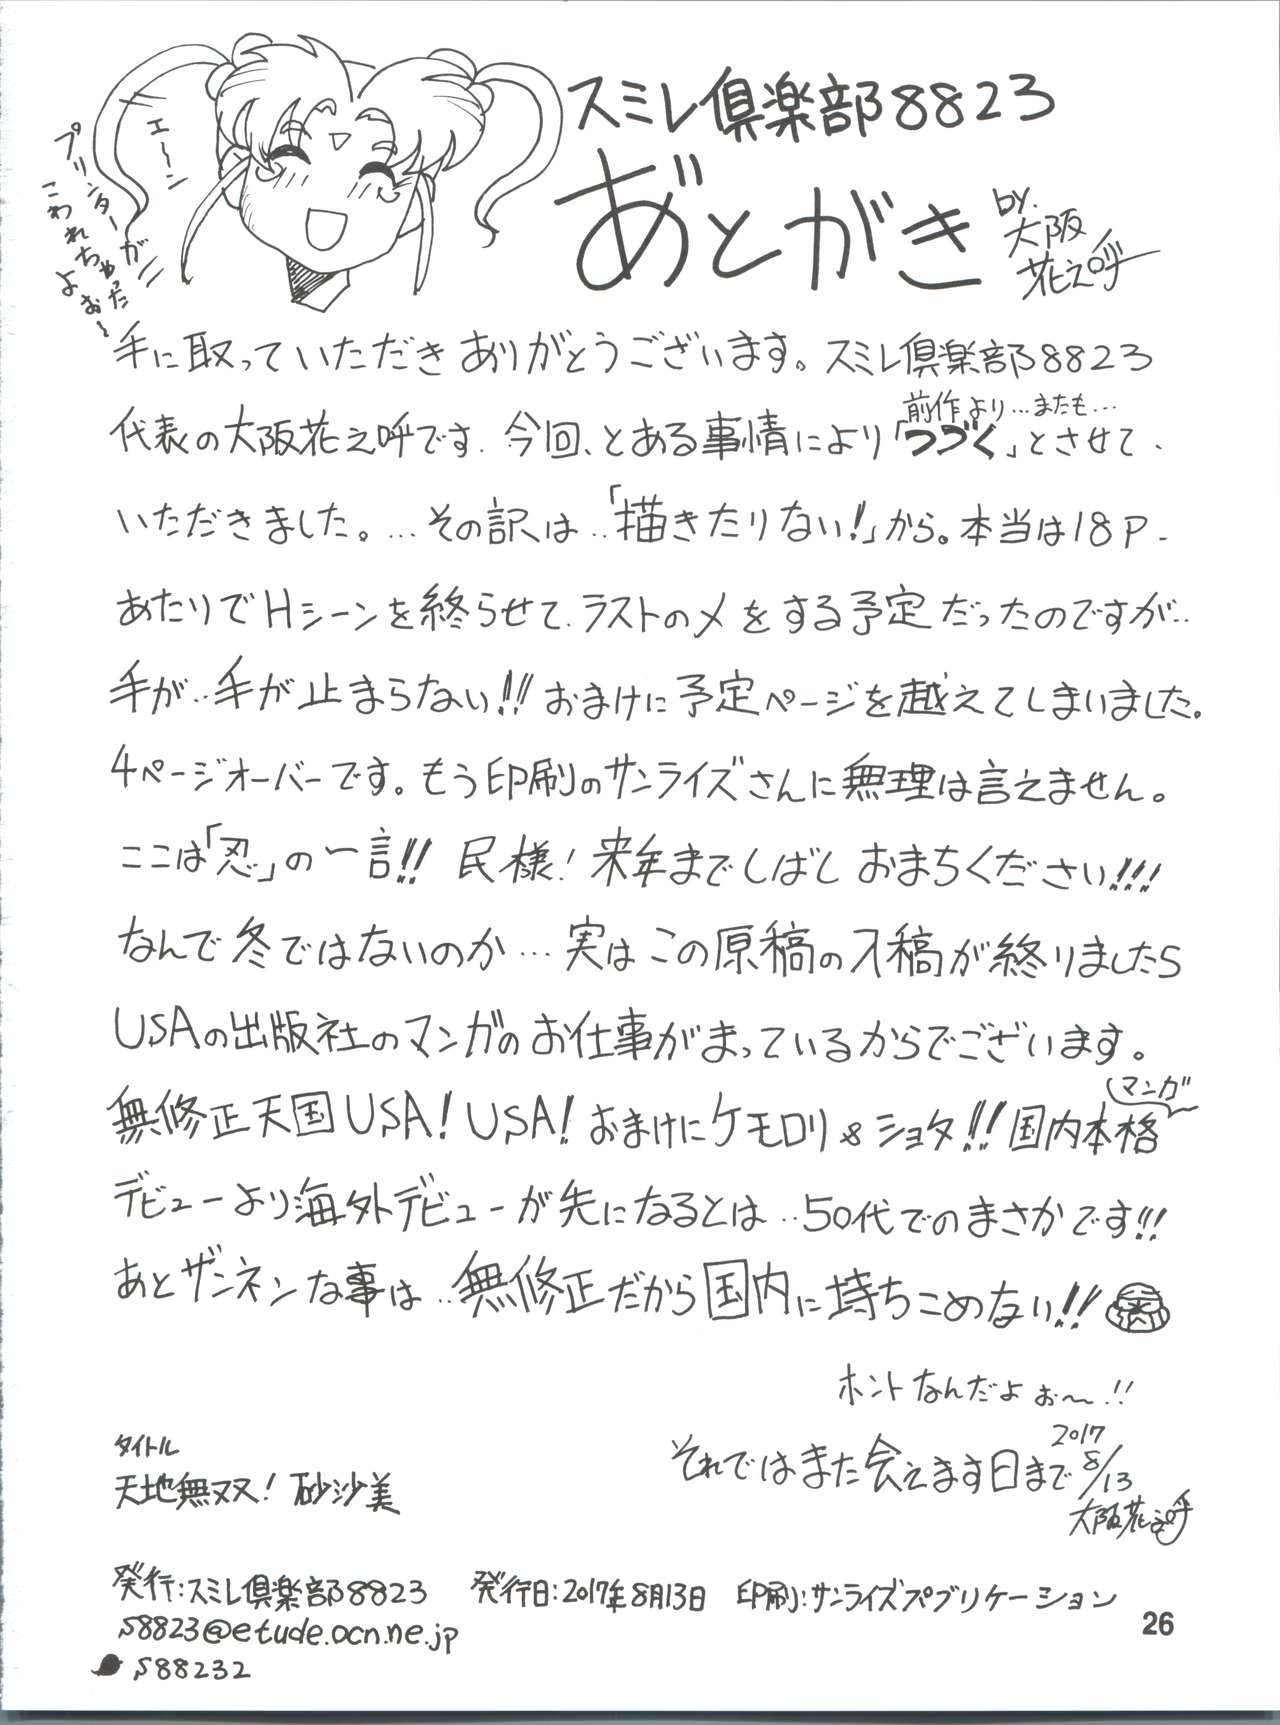 スミレ倶楽部8823
あとがき
by.
大阪
花之呼
エ〜ン
プリンターが
こわれちゃった
よぉ〜
手に取っていただきありがとうございます。スミレ倶楽部8823
前作より…またも…
代表の大阪花之呼です.今回、とある事情により「つづく」とさせて、
いただきました。…その訳は‥「描きたりない!」から。本当は18P-
あたりでHシーンを終らせて、ラストの〆をする予定だったのですが‥
手が‥手が止まらない!!おまけに予定ページを越えてしまいました。
4ページオーバーです。もう印刷のサンライズさんに無理は言えません。
ここは「忍」の一言!!民様!来年までしばしおまちください!!!
なんで冬ではないのか…実はこの原稿の入稿が終りましたら
USAの出版社のマンガのお仕事がまっているからでございます。
マンガ
無修正天国USA!USA!おまけにケモロリ&ショタ!!国内本格
デビューより海外デビューが先になるとは‥50代でのまさかです!!!
あとザンネンな事は‥無修正だから国内に持ちこめない!!
ホントなんだよぉ〜!!
それではまた会えます日まで
2017
8/13
大阪花之呼
タイトル
天地無双!砂沙美
発行:スミレ倶楽部8823 発行日:2017年8月13日 印刷:サンライズパブリケーション
S8823@etude.ocn.ne.jp
S88232
26